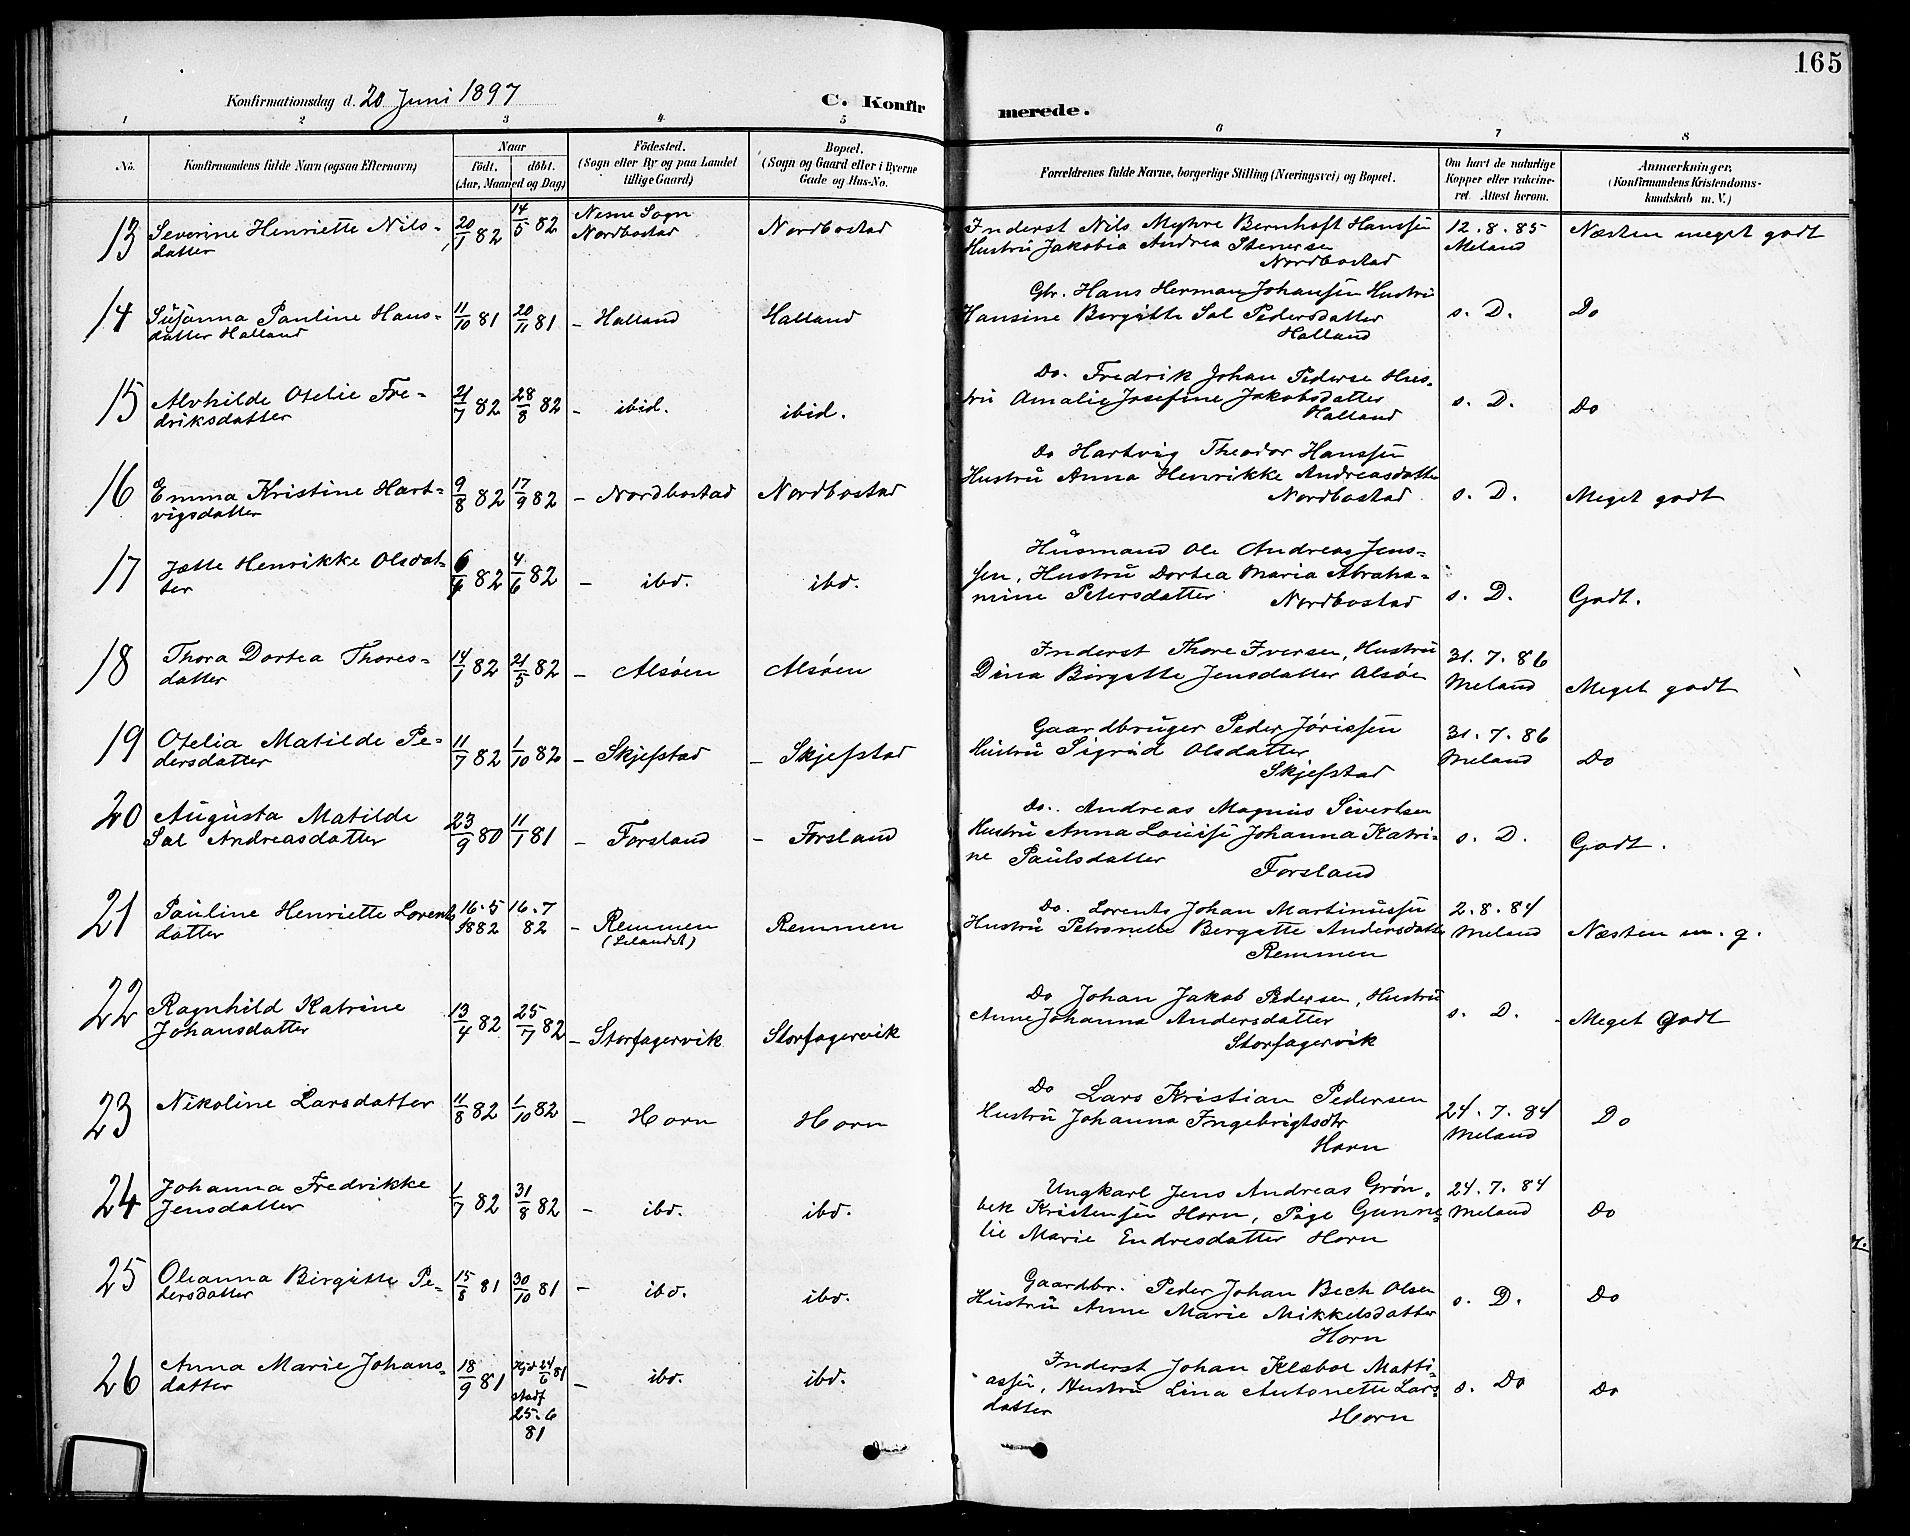 165
Konfirmationsdag d. 20 Juni 1897
C. Konfir merede.
1 2 3 4 5 6 7 8
No.
Konfirmandens fulde Navn (ogsaa Efternavn)
Naar
födt. döbt.
(Aar, Maaned og Dag)
Födested.
(Sogn eller By og paa Landet
tillige Gaard)
Bopæl.
(Sogn og Gaard eller i Byerne
Gade og Hus-No.
Forældrenes fulde Navne, borgerlige Stilling (Næringsvei) og Bopæl.
Om havt de naturlige
Kopper eller vakcine-
ret. Attest herom.
Anmærkninger.
(Konfirmandens Kristendoms-
kundskab m. V.)
13 Severine Henriette Nils-
datter
20/1 82 14/5 82
Nesne Sogn
Nordbostad
Nordbostad
Inderst Nils Myhre Bernhoft Hanssen
Hustru Jakobia Andrea Stenerse
Nordbostad
12. 8. 85
Meland
Næsten meget godt
14 Susanna Pauline Hans-
datter Halland
11/10 81 20/11 81
- Halland
Halland
Gbr. Hans Herman Johansen Hustru
Hansine Birgitte Sal Pedersdatter
Halland
s. D.
Do
15 Alvhilde Otelie Fre-
driksdatter
21/7 82 28/8 82
- ibid.
ibid.
Do. Fredrik Johan Pederse Hus-
tru Amalie Josefine Jakobsdatter
Halland
s. D.
Do
16 Emma Kristine Hart-
vigsdatter
9/8 82 17/9 82
- Nordbostad
Nordbostad
Do Hartvig Theodor Hanssen
Hustru Anna Henrikke Andreasdatter
Nordbostad
s. D.
Meget godt
17 Jette Henrikke Olsdat-
ter
6/4 82 4/6 82
- ibd.
ibd.
Husmand Ole Andreas Jens-
sen, Hustru Dortea Maria Abraha-
mine Petersdatter
Nordbostad
s. D.
Godt.
18 Thora Dortea Thores-
datter
14/1 82 21/5 82
- Alsøen
Alsøen
Inderst Thore Iversen, Hustru
Dina Birgitte Jensdatter Alsøe
31. 7. 86
Meland
Meget godt
19 Otelia Matilde Pe-
dersdatter
11/7 82 1/10 82
- Skjefstad
- Skjefstad
Gaardbruger Peder Jørissen
Hustru Sigrid Olsdatter
Skjefstad
31. 7. 86
Meland
Do
20 Augusta Matilde
Sal Andreasdatter
23/9 80 11/1 81
- Forsland
- Forsland
Do. Andreas Magnus Sivertsen
Hustru Anna Louise Johanna Katri-
ne Paulsdatter
Forsland
s. D.
Godt.
21 Pauline Henriette Lorents
datter
16.5 1882
16.7 82
- Remmen
(Lelandet)
Remmen
Do. Lorents Johan Martinussen
Hustru Petronelle Bergitte Andersdatter
Remmen
2. 8. 84
Meland
Næsten m. g.
22 Ragnhild Katrine
Johansdatter
13/4 82 25/7 82
- Storfagervik
Storfagervik
Do Johan Jakob Pedersen, Hustru
Anne Johanna Andersdatter
Storfagervik
s. D.
- Meget Godt
23 Nikoline Larsdatter
11/8 82 1/10 82
- Horn
Horn
Do Lars Kristian Pedersen
Hustru Johanna Ingebrigtsdtr
Horn
24. 7. 84
Meland
Do
24 Johanna Fredrikke
Jensdatter
1/7 82 31/8 82
- ibd.
ibd.
Ungkarl Jens Andreas Grøn-
bek Kristensen Horn, Pige Gunne-
lie Marie Endresdatter Horn
24. 7. 84
Meland
Do
25 Oleanna Birgitte Pe-
dersdatter
15/8 81 30/10 81
- ibd.
ibd.
Gaardbr. Peder Johan Bech Olsen
Hustru Anne Marie Mikkelsdatter
Horn
s. D.
Do
26 Anna Marie Johans-
datter
18/9 81
Hjd 24/6 81
stadf
25.6
81
- ibd.
ibd.
Inderst Johan Klæboe Matti-
assen, Hustru Lina Antonette Lars-
datter
Horn
s. Do
Do